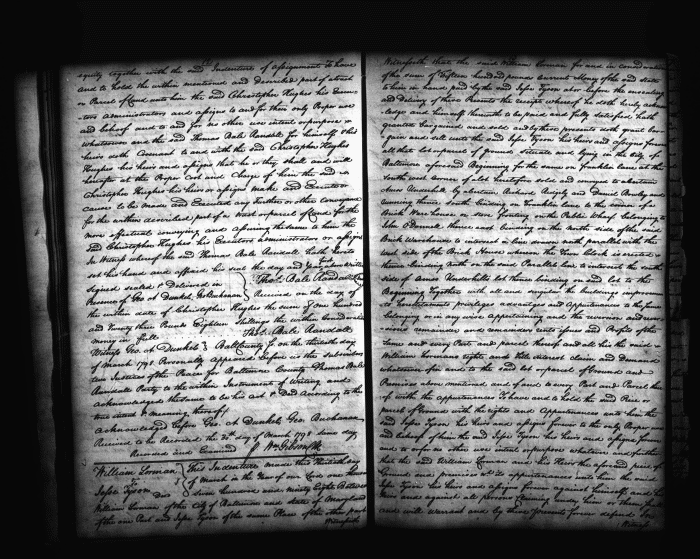 equity together with the said Indenture of assignment to have
and to hold the within mentioned and described part of a tract
or Parcel of Land unto him the said Christopher Hughes his Execu-
tors administrators and assigns to and for their only Proper use
and behoof and to and for no other use intent or purpose
whatsoever and the said Thomas Bale Randall for himself & his
heirs doth Covenant to and with the said Christopher Hughes
Hughes his heirs and assigns that he & they shall and will
hereafter at the Proper Cost and Charge of him the said
Christopher Hughes his heirs or assigns make and Execute or
cause to be made and Executed any Further or other conveyance
for the within described part of a tract or parcel of Land for the
more effectual conveying and assuring the same to him the
said Christopher Hughes his Executors administrators or assigns
In Witness whereof the said Thomas Bale Randall hath hereunto
set his hand and affixed his seal the day and year within Written
Signed sealed & Delivered in
Presence of Geo. A Dunkel Geo Buchanan
Thos. Bale Randall
Received on the day of
the within date of Christopher Hughes the sum of One hundred
and Twenty three Pounds Eighteen Shillings the within Consideration
money in full
Thos. Bale Randall
Witness Geo. A Dunkel Balt County Ss. on the thirtieth day
of March 1798 Personally appeared before us the subscribers
two Justices of the Peace for Baltimore County Thomas Bale
Randall Party to the within Instrument of Writing and
acknowledged the same to be his act & Deed according to the
true intent & meaning thereof
Acknowledged before Geo. A Dunkel Geo. Buchanan
Received to be Recorded the 30th day of March 1798 same day
Recorded and Examined Wm Gibson Clk
William Lorman
To Deed
Jesse Tyson
This Indenture made this Thirtieth day
of March in the Year of our Lord one Thousand
seven hundred and ninety Eight Between
William Lorman of the City of Baltimore and state of Maryland
of the one Part and Jesse Tyson of the same Place of the other part
Witnesseth
Witnesseth that the said William Lorman for and in consideration
of the sum of Fifteen hundred pounds Current Money of the said State
to him in hand paid by the said Jesse Tyson at or before the ensealing
and Delivery of these Presents the receipt whereof he doth hereby acknow
ledge and himself therewith to be paid and fully satisfied hath
granted bargained and sold and by these presents doth grant bar-
gain and sell unto the said Jesse Tyson his heirs and assigns forever
all that lot or parcel of ground situate and lying in the City of
Baltimore aforesaid Beginning for the same on Franklin Lane at the
south west corner of a lot heretofore sold and conveyed to
Amos Underhill by
running thence south binding on Franklin Lane to the corner of a
Brick Ware house or store fronting on the Public Wharf belonging to
John O'Donnell thence east binding on the north side of the said
Brick Warehouse to intersect a line drawn north parallel with the
west side of the Brick House whereon the Town Clock is erected
thence binding North on the said Parallel line to intersect the south
side of Amos Underhills lot thence binding on said lot to the
Beginning Together with all and singular the buildings improve
ments privileges advantages and Appurtenances to the same
belonging or in any wise appertaining and the reversion and rever-
sions remainder and remainders rents issues and Profits of the
same and every Part and parcel thereof and all his the said
William Lormans right and title interest claim and Demand
whatsoever of in and to the said lot or parcel of Ground and
Premises above mentioned and of and to every Part and Parcel there
of with the appurtenances To have and to Hold the said Piece or
parcel of Ground with the rights and Appurtenances unto him the
said Jesse Tyson his heirs and assigns forever to the only Proper use
and behoof of him the said Jesse Tyson his heirs and assigns forever
and to or for no other use intent or purpose whatever and further
that the said William Lorman and his Heirs the aforesaid piece of
Ground and its appurtenances unto him the said
Jesse Tyson his heirs and assigns forever against himself and his
heirs and against all persons Claiming under him or them shall
and will warrant and by these presents forever defend In
Witness